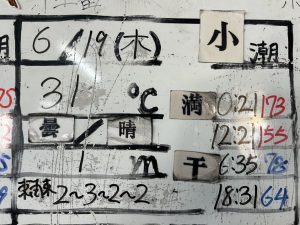 6/19(木) 小潮
31℃ 満 0:21 173
曇/晴 12:21 155
1m 干 6:35 78
2～3～2～2 18:31 64